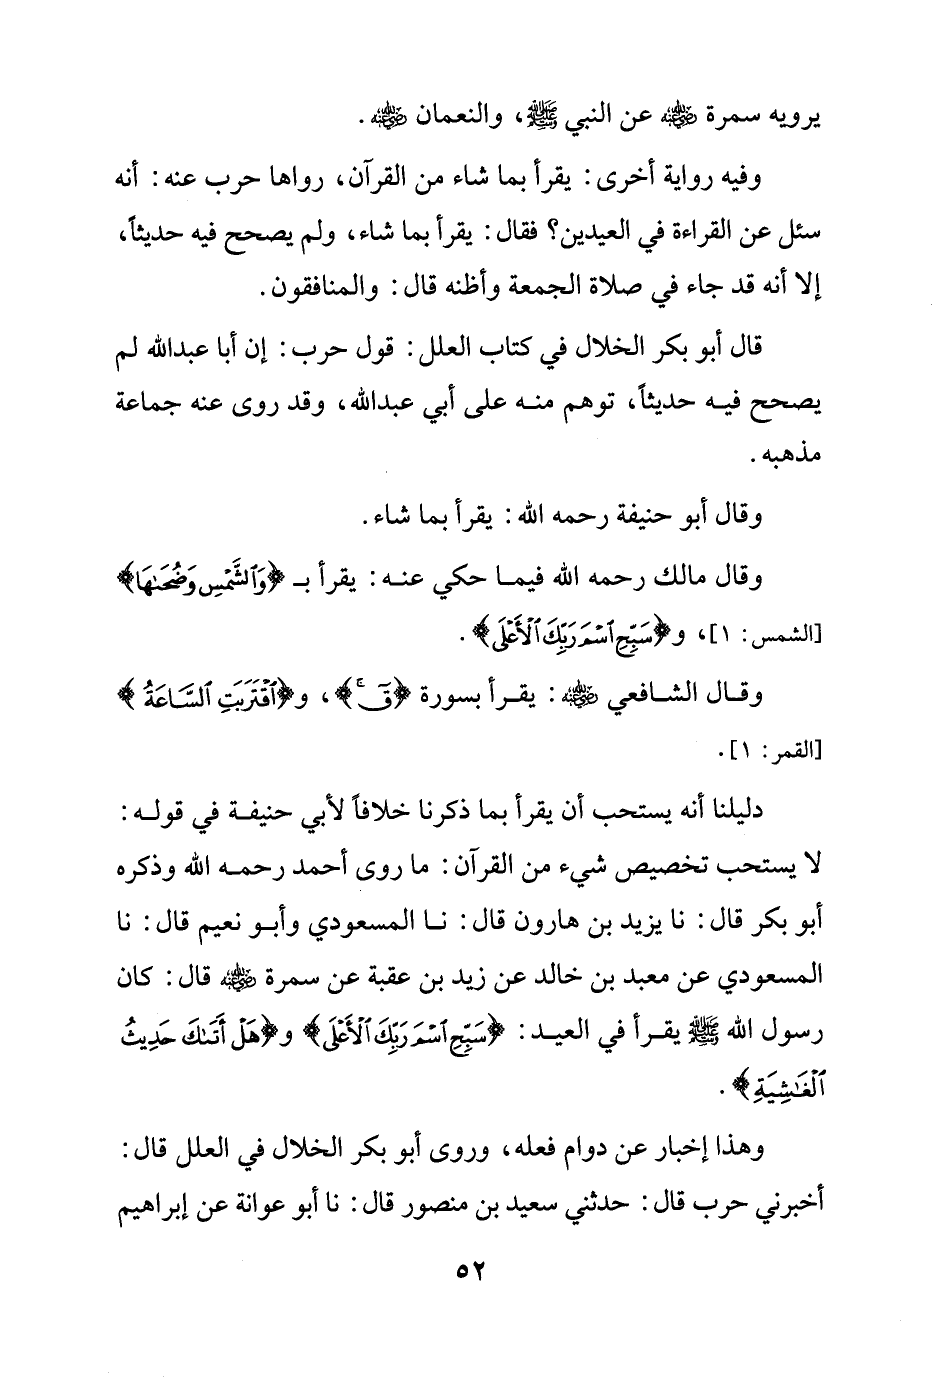 يرويه سمرة ﵁ عن النبي ﷺ، والنعمان ﵁.
وفيه رواية أخرى: يقرأ بما شاء من القرآن، رواها حرب عنه: أنه
سئل عن القراءة في العيدين؟ فقال: يقرأ بما شاء، ولم يصحح فيه حديثاً،
إلا أنه قد جاء في صلاة الجمعة وأظنه قال: والمنافقون.
قال أبو بكر الخلال في كتاب العلل: قول حرب: إن أبا عبدالله لم
يصحح فيه حديثاً، توهم منه على أبي عبدالله، وقد روى عنه جماعة
مذهبه.
وقال أبو حنيفة رحمه الله: يقرأ بما شاء.
وقال مالك رحمه الله فيما حكي عنه: يقرأ بـ ﴿وَٱلشَّمْسِ وَضُحَىٰهَا﴾
[الشمس: ١]، و﴿سَبِّحِ ٱسْمَ رَبِّكَ ٱلْأَعْلَى﴾.
وقال الشافعي ﵁: يقرأ بسورة ﴿قٓۚ﴾، و﴿ٱقْتَرَبَتِ ٱلسَّاعَةُ﴾
[القمر: ١].
دليلنا أنه يستحب أن يقرأ بما ذكرنا خلافاً لأبي حنيفة في قوله:
لا يستحب تخصيص شيء من القرآن: ما روى أحمد رحمه الله وذكره
أبو بكر قال: نا يزيد بن هارون قال: نا المسعودي وأبو نعيم قال: نا
المسعودي عن معبد بن خالد عن زيد بن عقبة عن سمرة ﵁ قال: كان
رسول الله ﷺ يقرأ في العيد: ﴿سَبِّحِ ٱسْمَ رَبِّكَ ٱلْأَعْلَى﴾ و﴿هَلْ أَتَىٰكَ حَدِيثُ
ٱلْغَٰشِيَةِ﴾.
وهذا إخبار عن دوام فعله، وروى أبو بكر الخلال في العلل قال:
أخبرني حرب قال: حدثني سعيد بن منصور قال: نا أبو عوانة عن إبراهيم
٥٢